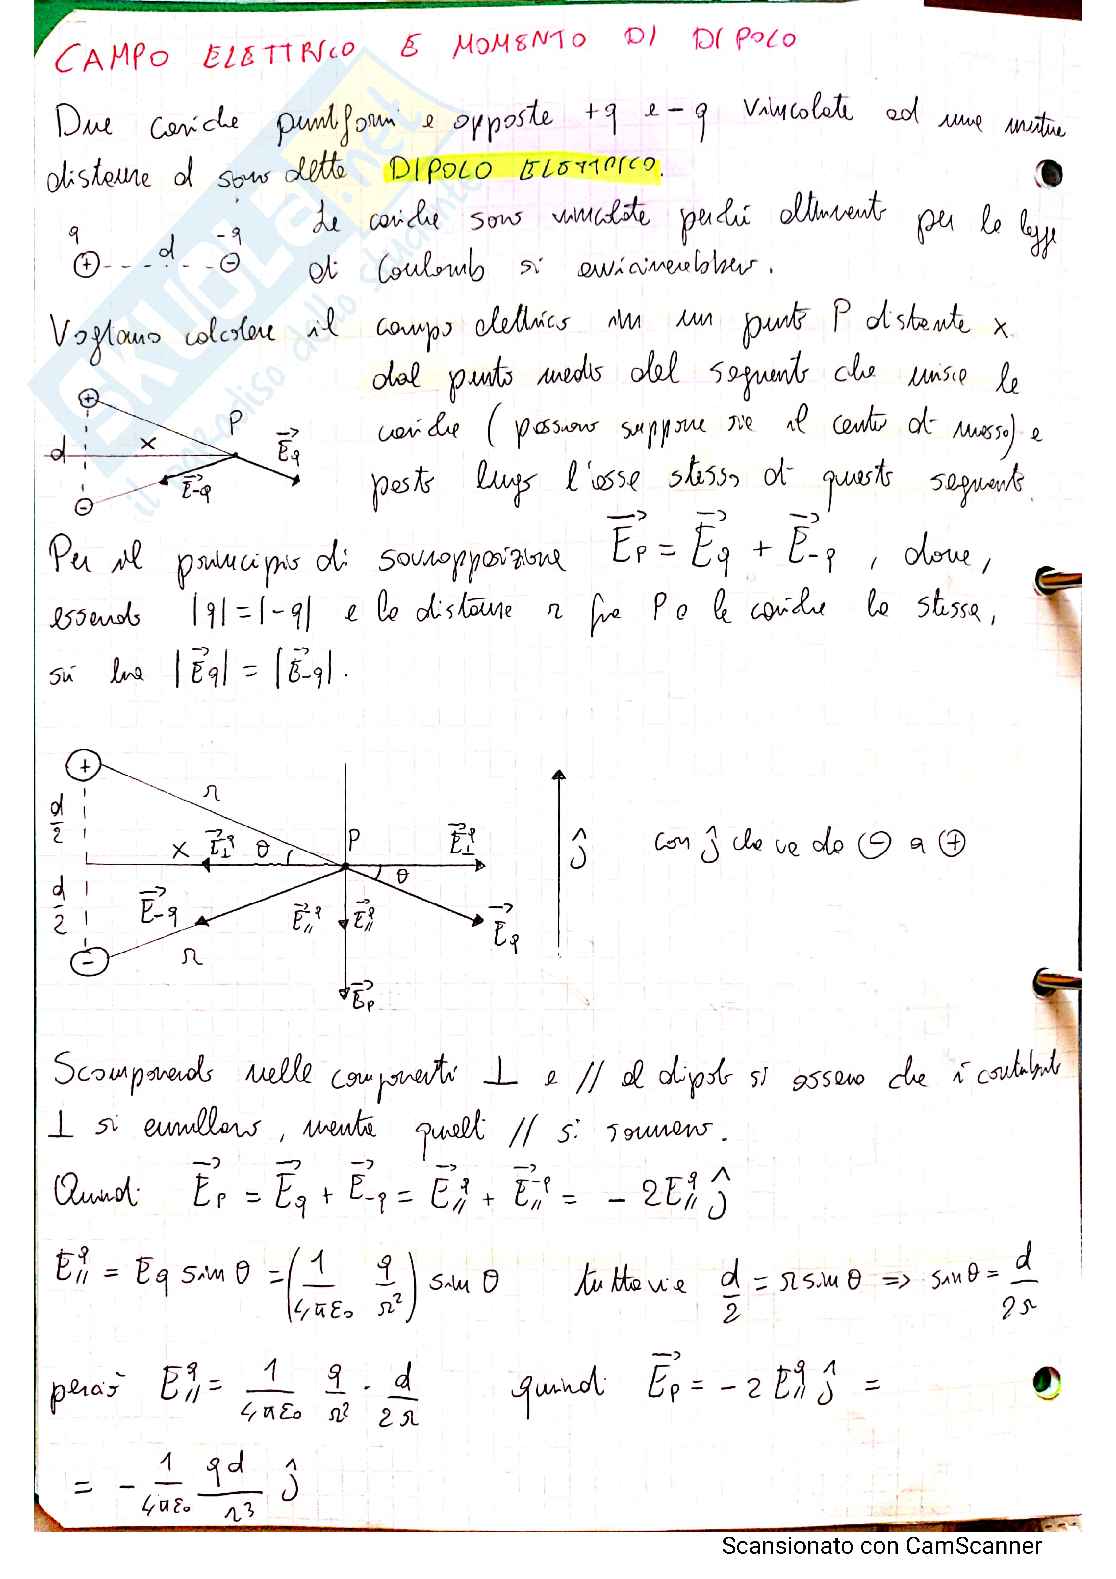 CAMPO ELETTRICO E MOMENTO DI DIPOLO
Due cariche puntiformi e opposte +q e -q vincolate ad una mutua
distanza d sono dette DIPOLO ELETTRICO.
q d -q
+ -
Le cariche sono vincolate perché altrimenti per la legge
di Coulomb si avvicinerebbero.
Vogliamo calcolare il campo elettrico in un punto P distante x
dal punto medio del segmento che unisce le
cariche (possiamo supporre sia il centro di massa) e
posto lungo l'asse stesso di questo segmento.
+
P
d x E⃗q
E⃗-q
-
Per il principio di sovrapposizione E⃗P = E⃗q + E⃗-q , dove,
essendo |q|=|-q| e la distanza r fra P e le cariche la stessa,
si ha |E⃗q| = |E⃗-q|.
+
r
d/2
P
x E⃗⊥^-q θ E⃗⊥^q
ĵ con ĵ che va da ⊖ a ⊕
θ
d/2
E⃗-q E⃗//^-q E⃗//^q E⃗q
- r
E⃗P
Scomponendo nelle componenti ⊥ e // al dipolo si osserva che i contributi
⊥ si annullano, mentre quelli // si sommano.
Quindi E⃗P = E⃗q + E⃗-q = E⃗//^q + E⃗//^-q = - 2E//^q ĵ
E//^q = Eq sin θ = (1/4πε₀ q/r²) sin θ tuttavia d/2 = r sin θ => sin θ = d/2r
perciò E//^q = 1/4πε₀ q/r² · d/2r quindi E⃗P = - 2 E//^q ĵ =
= - 1/4πε₀ qd/r³ ĵ
SKUOLA.net
il paradiso dello studente
Scansionato con CamScanner